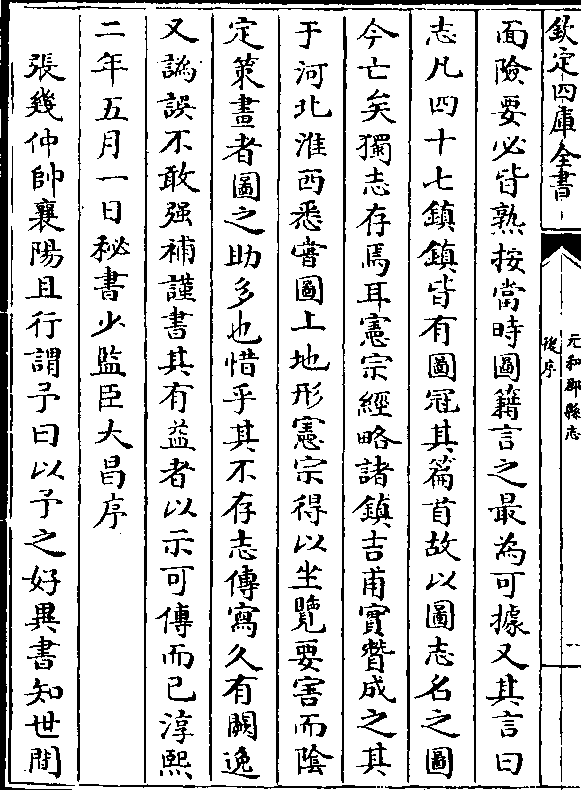 欽定四庫全書
元和郡縣志
後序
面險要必皆熟按當時圖籍言之最為可據又其言曰
志凡四十七鎮鎮皆有圖冠其篇首故以圖志名之圖
今亡矣獨志存焉耳憲宗經略諸鎮吉甫實贊成之其
于河北淮西悉嘗圖上地形憲宗得以坐覽要害而隂
定策畫者圖之助多也惜乎其不存志傳寫久有闕逸
又譌誤不敢强補謹書其有益者以示可傳而已淳熙
二年五月一日秘書少監臣大昌序
張幾仲帥襄陽且行謂予曰以予之好異書知世間